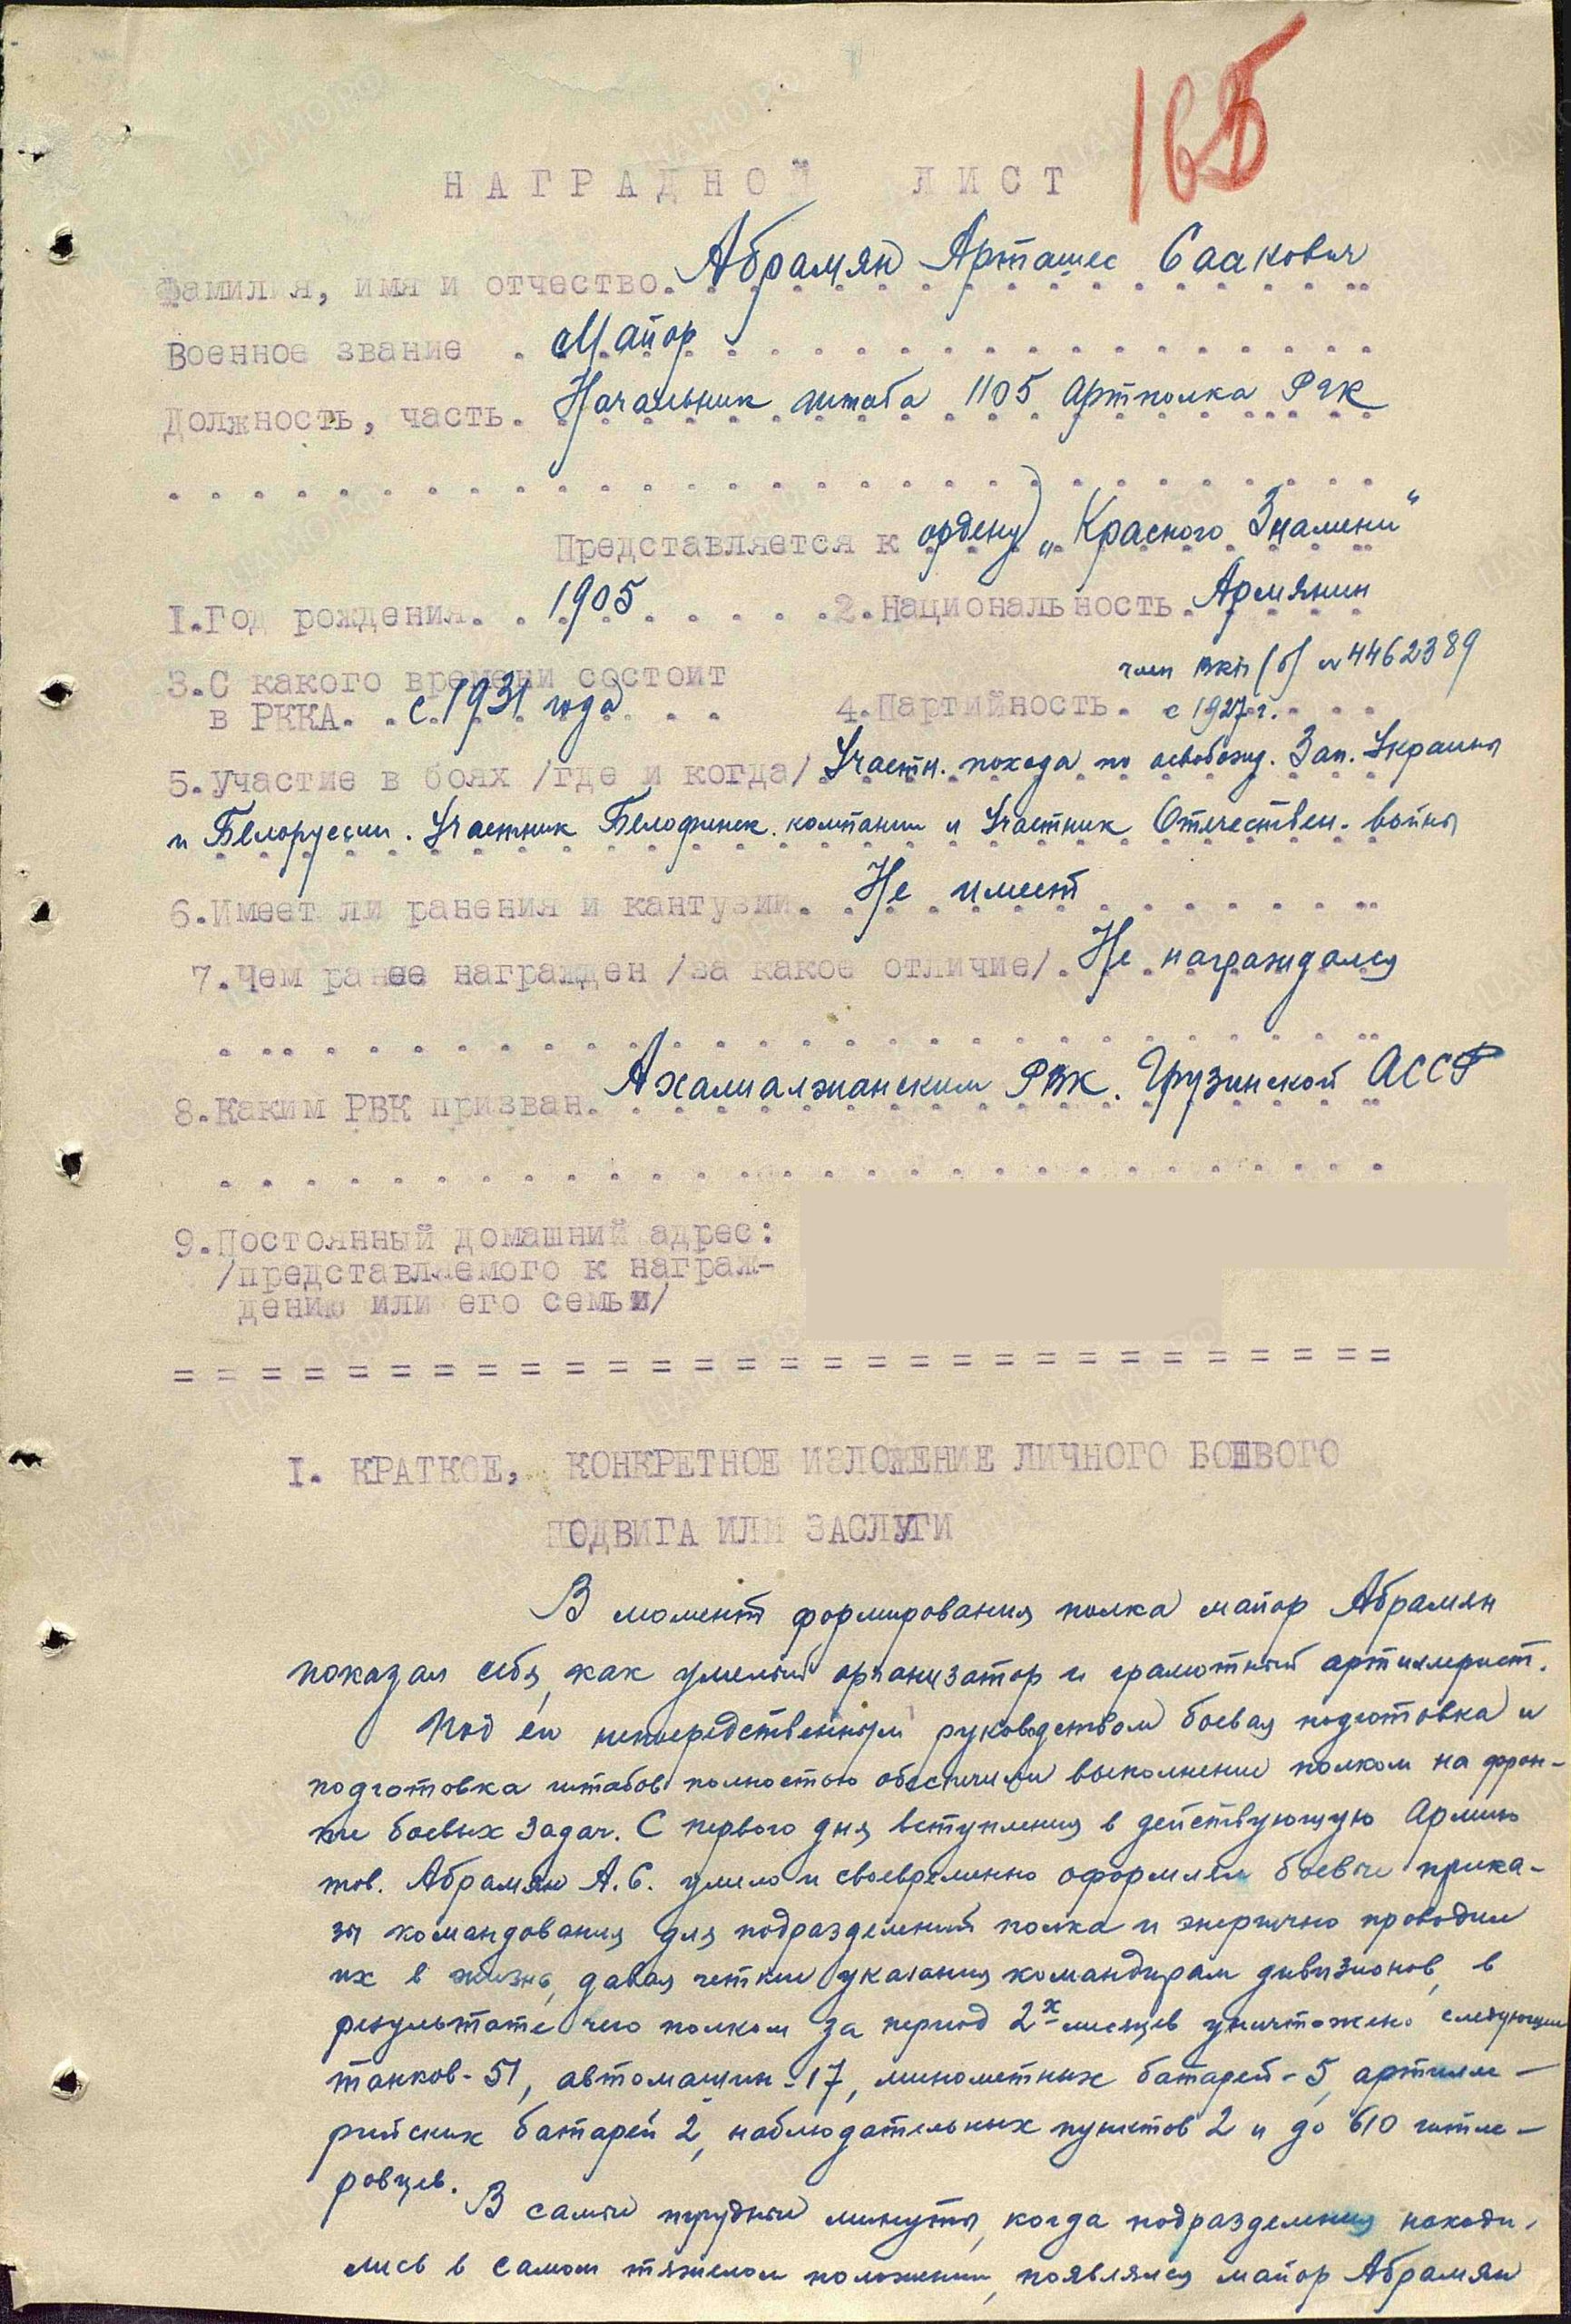 165
НАГРАДНОЙ ЛИСТ
Фамилия, имя и отчество. Абрамян Арташес Саакович
Военное звание . Майор
Должность, часть. Начальник штаба 1105 Артполка РГК
Представляется к ордену „Красного Знамени“
1.Год рождения. . 1905 . . . . . 2.Национальность. Армянин
3.С какого времени состоит
член ВКП(б) № 4462389
в РККА. . с 1931 года . . 4.Партийность. с 1927 г.
5.Участие в боях /где и когда/ Участн. похода по освобожд. Зап. Украины
и Белоруссии. Участник Белофинск. компании и Участник Отечествен. войны
6.Имеет ли ранения и кантузии. Не имеет
7.Чем ранее награжден /за какое отличие/. Не награждался
8.Каким РВК призван. РВК. Грузинской АССР
9.Постоянный домашний адрес:
/представляемого к награж-
дению или его семьи/
I. КРАТКОЕ, КОНКРЕТНОЕ ИЗЛОЖЕНИЕ ЛИЧНОГО БОЕВОГО
ПОДВИГА ИЛИ ЗАСЛУГИ
В момент формирования полка майор Абрамян
показал себя, как умелый организатор и грамотный артиллерист.
Под его непосредственным руководством боевая подготовка и
подготовка штабов полностью обеспечили выполнение полком на фрон-
те боевых задач. С первого дня вступления в действующую Армию
тов. Абрамян А.С. умело и своевременно оформлял боевые прика-
зы командования для подразделений полка и энергично проводил
их в жизнь, давая четкие указания командирам дивизионов, в
результате чего полком за период 2х месяцев уничтожено следующее
танков - 51, автомашин - 17, минометных батарей - 5, артилле-
рийских батарей 2, наблюдательных пунктов 2 и до 610 гитле-
ровцев.
В самые трудные минуты, когда подразделения находи-
лись в самом тяжелом положении, появлялся майор Абрамян